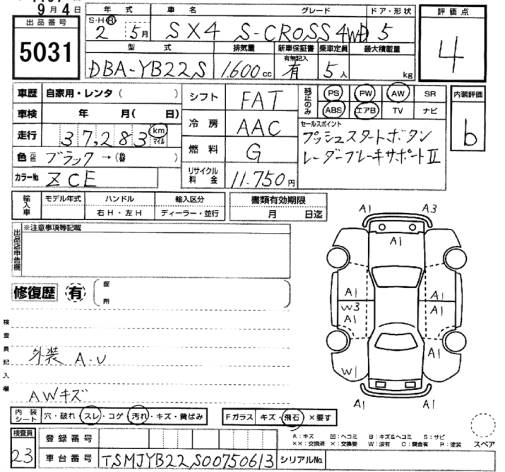 9月4日
出品番号
5031
年式 車名 グレード ドア・形状
S・H・R 2年 5月 SX4 S-CROSS 4WD 5
型式 排気量 新車保証書 有無記入 乗車定員 最大積載量
DBA-YB22S 1,600cc 有 5人 kg
評価点
4
車歴 自家用・レンタ ( )
車検 年 月( 日)
走行 37,283 km マイル
色 ブラック →( )
カラーNo ZCE
シフト FAT
冷房 AAC
燃料 G
リサイクル料金 11.750円
PS PW AW SR
ABS エアB TV ナビ
セールスポイント
プッシュスタートボタン
レーダーブレーキサポートⅡ
内装評価
b
輸入車 モデル年式 ハンドル 輸入区分
右H・左H ディーラー・並行
書類有効期限
月 日迄
出品店申告欄
※注意事項等記載
修復歴 有 箇所
検査員記入欄
外装 A・U
AWキズ
A1 A3
A1
A1 A1
W3 A1
A1
W1 A1
A1 A1
内装シート 穴・破れ スレ・コゲ 汚れ・キズ・黄ばみ
Fガラス キズ・飛石 ×要す
スペア
A:キズ B:キズ&ヘコミ S:サビ
××:交換済 ×:要交換 W:波有 C:腐食有 P:塗装
検査員
23
登録番号
車台番号 TSMJYB22S00750613
シリアルNo.